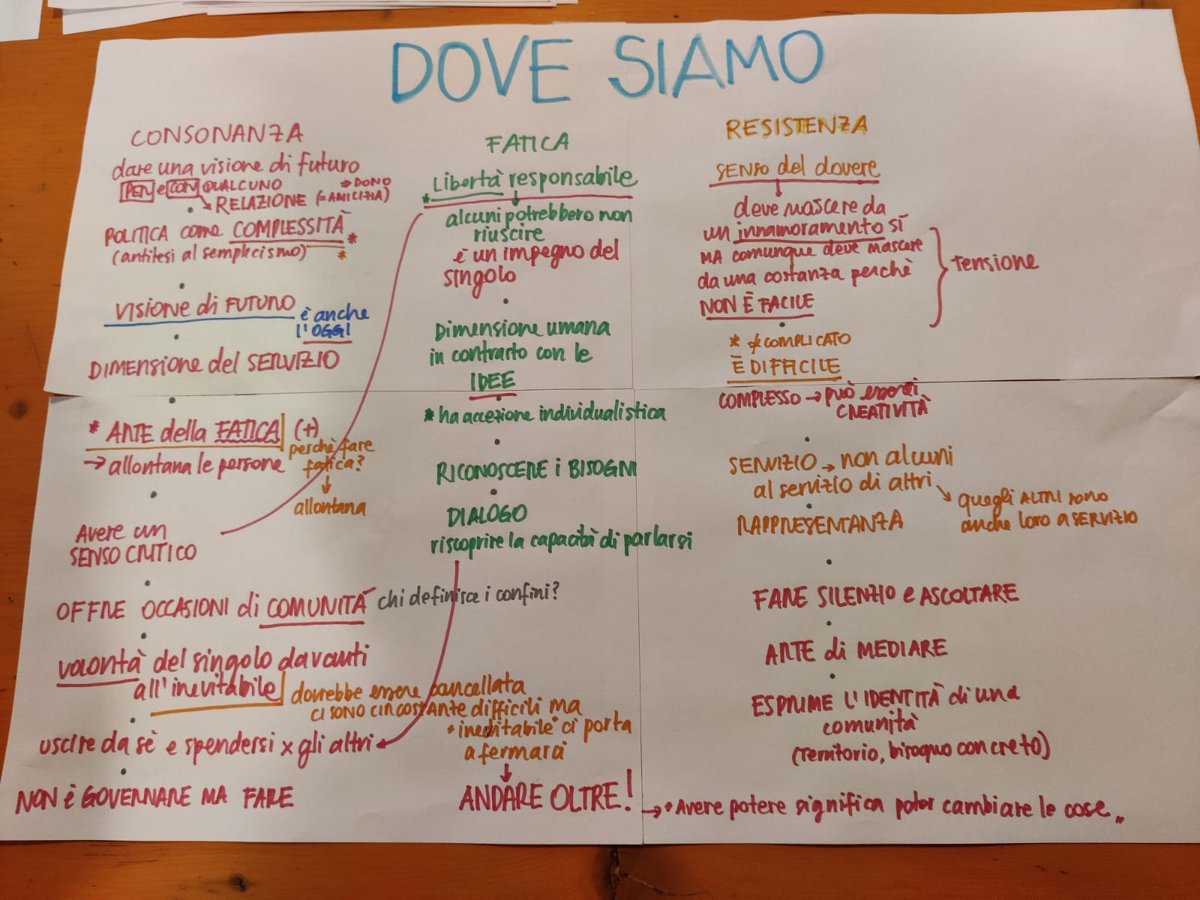 DOVE SIAMO
CONSONANZA
dare una visione di futuro
PER e CON QUALCUNO
→ DONO
→ RELAZIONE (=AMICIZIA)
POLITICA come COMPLESSITÀ *
(antitesi al semplicismo) *
VISIONE di FUTURO
è anche
l'OGGI
DIMENSIONE del SERVIZIO
* ARTE della FATICA (+)
→ allontana le persone
perchè fare
fatica?
↓
allontana
Avere un
SENSO CRITICO
OFFRE OCCASIONI di COMUNITÀ
chi definisce i confini?
volontà del singolo davanti
all'inevitabile
dovrebbe essere cancellata
CI SONO CIRCOSTANZE difficili ma
"inevitabile" ci porta
a fermarci
↓
ANDARE OLTRE!
uscire da sè e spendersi x gli altri
NON è GOVERNARE MA FARE
FATICA
* Libertà responsabile
↓
alcuni potrebbero non
riuscire
è un impegno del
singolo
Dimensione umana
in contrasto con le
IDEE
* ha accezione individualistica
RICONOSCERE i BISOGNI
DIALOGO
riscoprire la capacità di parlarsi
RESISTENZA
SENSO del dovere
↓
deve nascere da
un innamoramento sì
MA comunque deve nascere
da una costanza perchè
NON È FACILE
} TENSIONE
* ≠ COMPLICATO
È DIFFICILE
COMPLESSO → può esserci
CREATIVITÀ
SERVIZIO → non alcuni
al servizio di altri
→ quegli ALTRI sono
anche loro a SERVIZIO
RAPPRESENTANZA
FARE SILENZIO e ASCOLTARE
ARTE di MEDIARE
ESPRIME L'IDENTITÀ di una
comunità
(Territorio, bisogno concreto)
→ * Avere potere significa poter cambiare le cose